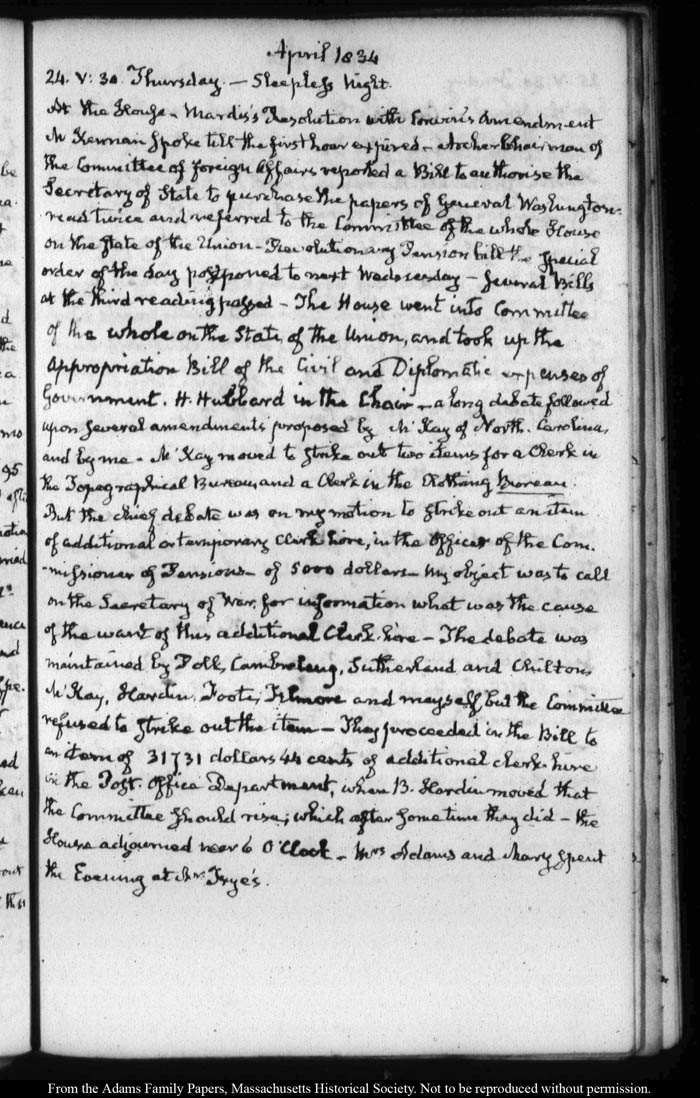 April 1834
24. V: 30. Thursday. — Sleepless Night.
At the House. Mardis's Resolution with Corwin's Amendment
Mr Kennan spoke till the first hour expired — Archer Chairman of
the Committee of foreign Affairs reported a Bill to authorise the
Secretary of State to purchase the papers of General Washington.
read twice and referred to the Committee of the whole House
on the State of the Union — Revolutionary Pension bill the special
order of the day postponed to next Wednesday — several Bills
at the third reading passed — The House went into Committee
of the whole on the State of the Union, and took up the
Appropriation Bill of the Civil and Diplomatic expenses of
Government. H. Hubbard in the Chair — a long debate followed
upon several amendments proposed by McKay of North. Carolina,
and by me. McKay moved to strike out two items for a Clerk in
the Topographical Bureau, and a Clerk in the Clothing Bureau.
But the chief debate was on my motion to strike out an item
of additional or temporary clerk hire, in the Office of the Com-
-missioner of Pensions — of 5000 dollars — My object was to call
on the Secretary of War, for information what was the cause
of the want of this additional Clerk-hire — The debate was
maintained by Polk, Cambreleng, Sutherland and Chilton,
McKay, Hardin, Foote, Filmore and myself but the Committee
refused to strike out the item — They proceeded in the Bill to
an item of 31731 dollars 44 cents of additional clerk hire
in the Post. Office Department, when B. Hardin moved that
the Committee should rise; which after some time they did — the
House adjourned near 6 O'Clock — Mrs Adams and Mary spent
the Evening at Mr Frye's.
From the Adams Family Papers, Massachusetts Historical Society. Not to be reproduced without permission.